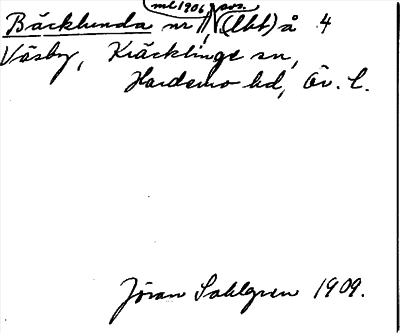 ml 1906
Bäcklunda nr 1 (lht) å 4
Väsby, Kräcklinge sn,
Hardemo hd, Ör. l.
Jöran Sahlgren 1909.